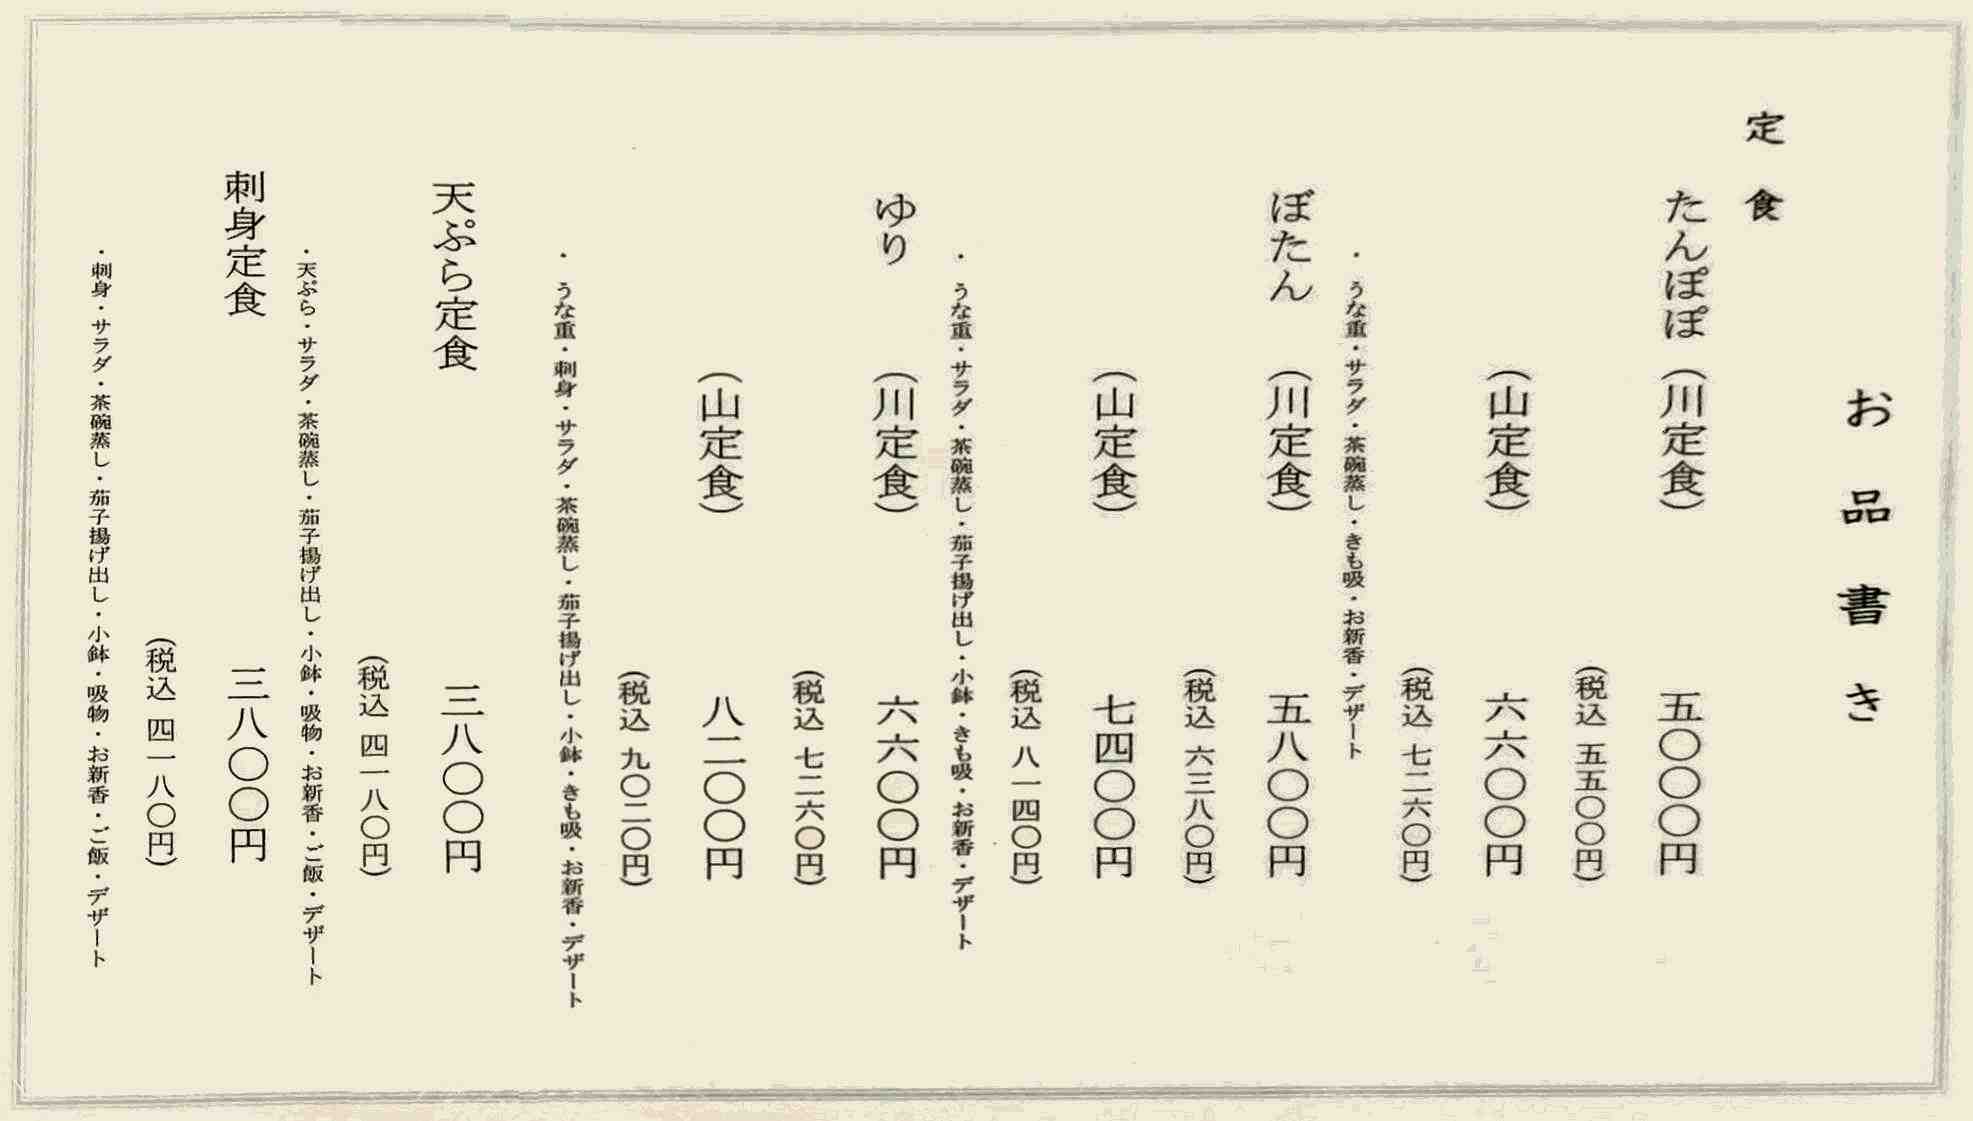 お品書き
定食
たんぽぽ (川定食) 五〇〇〇円
(税込 五五〇〇円)
(山定食) 六六〇〇円
(税込 七二六〇円)
・ うな重・サラダ・茶碗蒸し・きも吸・お新香・デザート
ぼたん (川定食) 五八〇〇円
(税込 六三八〇円)
(山定食) 七四〇〇円
(税込 八一四〇円)
・ うな重・サラダ・茶碗蒸し・茄子揚げ出し・小鉢・きも吸・お新香・デザート
ゆり (川定食) 六六〇〇円
(税込 七二六〇円)
(山定食) 八二〇〇円
(税込 九〇二〇円)
・ うな重・刺身・サラダ・茶碗蒸し・茄子揚げ出し・小鉢・きも吸・お新香・デザート
天ぷら定食 三八〇〇円
(税込 四一八〇円)
・天ぷら・サラダ・茶碗蒸し・茄子揚げ出し・小鉢・吸物・お新香・ご飯・デザート
刺身定食 三八〇〇円
(税込 四一八〇円)
・刺身・サラダ・茶碗蒸し・茄子揚げ出し・小鉢・吸物・お新香・ご飯・デザート